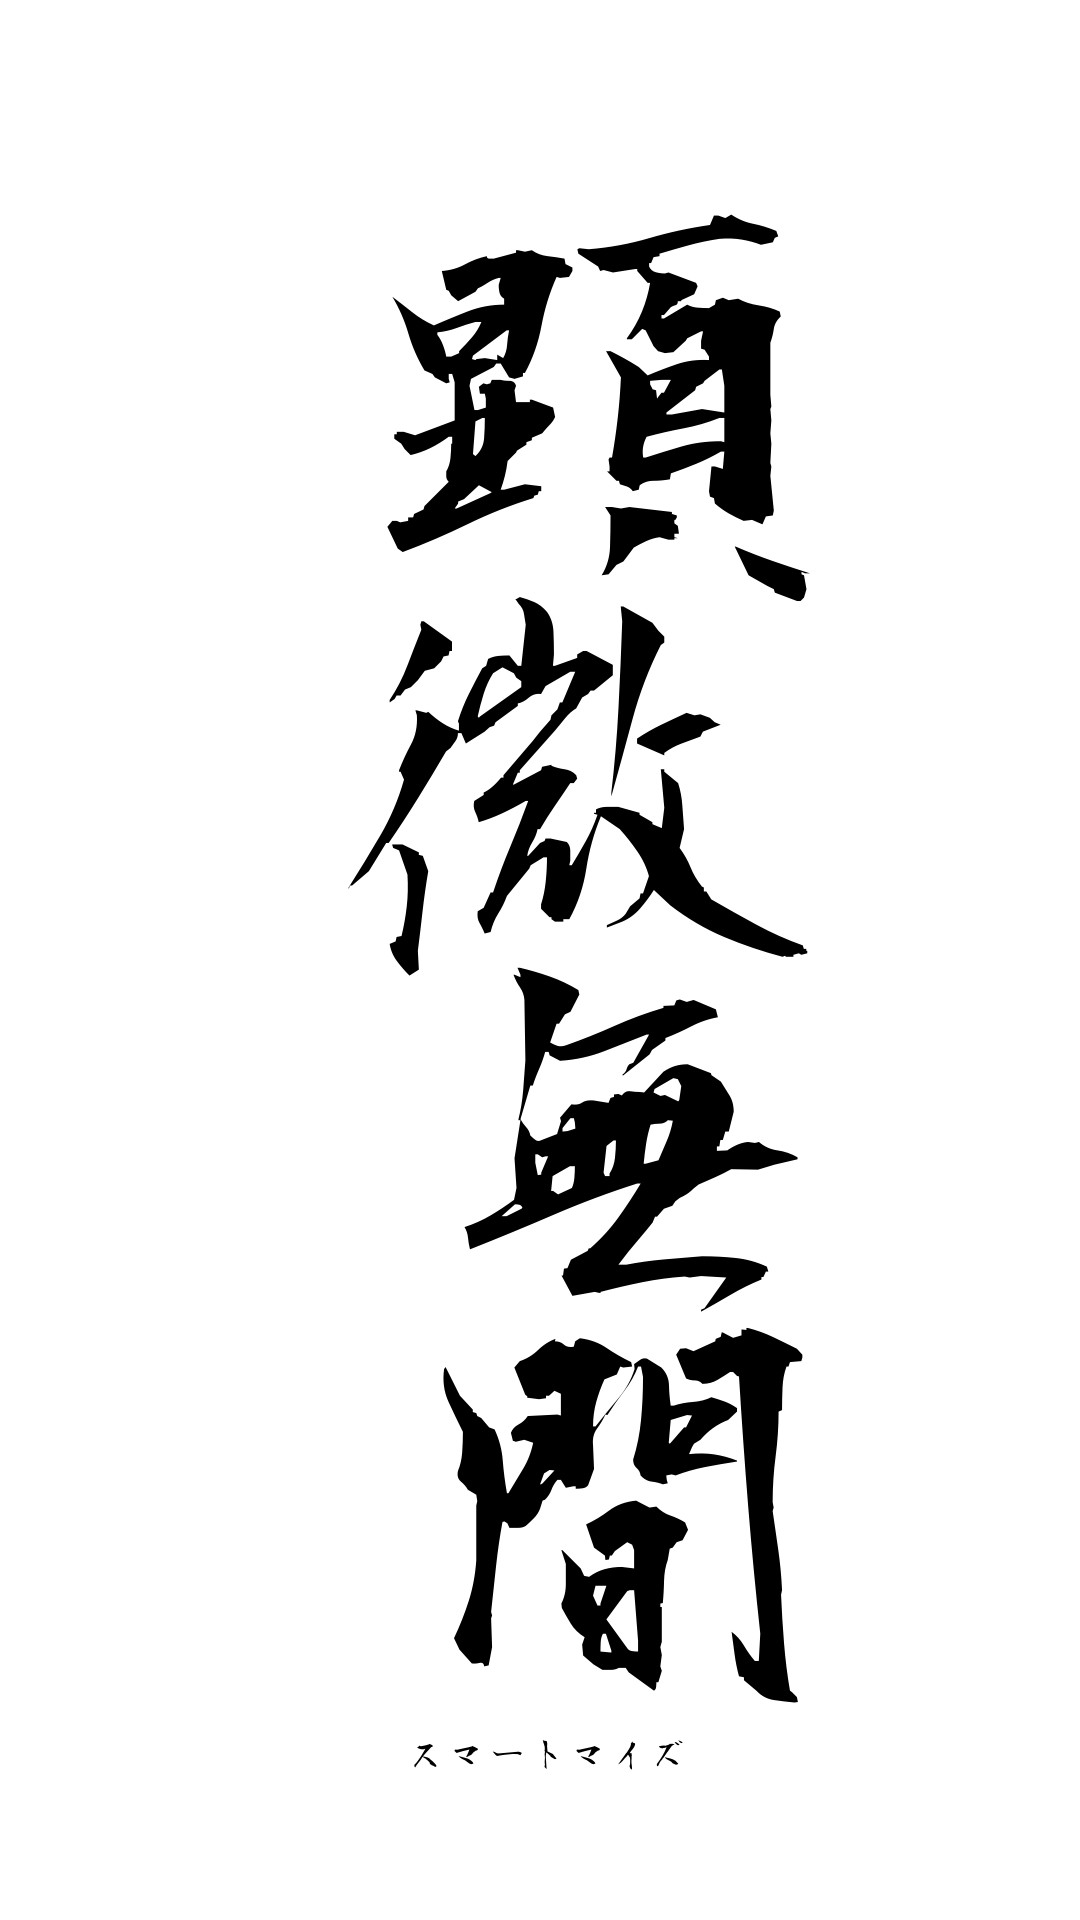 顕微無間
スマートマイズ